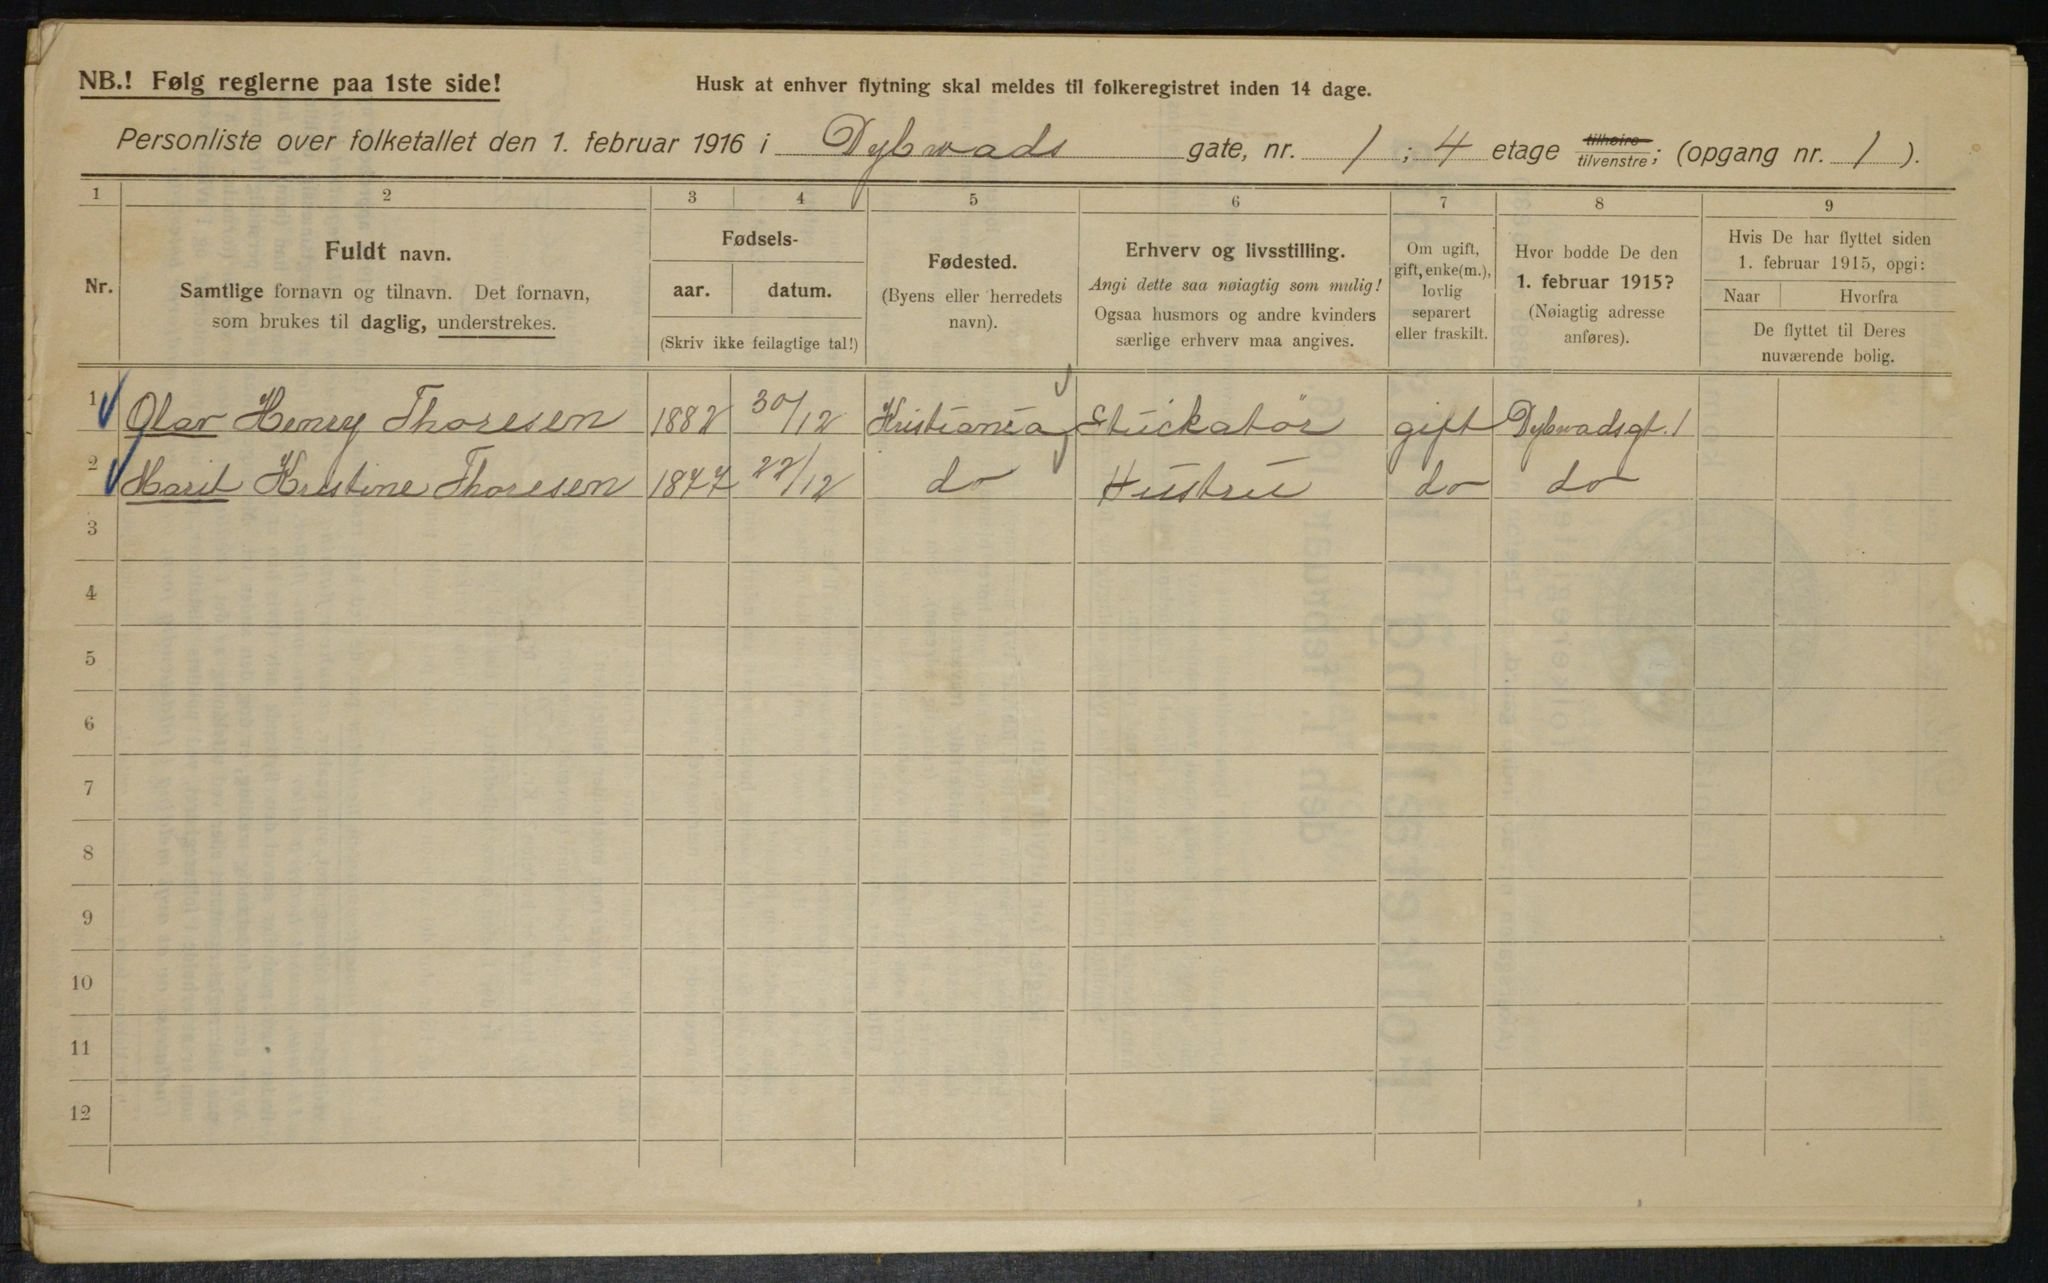 NB.! Følg reglerne paa 1ste side!
Husk at enhver flytning skal meldes til folkeregistret inden 14 dage.
Personliste over folketallet den 1. februar 1916 i Dybwads gate, nr. 1; 4 etage tilhøire tilvenstre; (opgang nr. 1).
1 2 3 4 5 6 7 8 9
Nr.
Fuldt navn.
Samtlige fornavn og tilnavn. Det fornavn,
som brukes til daglig, understrekes.
Fødsels-
aar. datum.
(Skriv ikke feilagtige tal!)
Fødested.
(Byens eller herredets
navn).
Erhverv og livsstilling.
Angi dette saa nøiagtig som mulig!
Ogsaa husmors og andre kvinders
særlige erhverv maa angives.
Om ugift,
gift, enke(m.),
lovlig
separert
eller fraskilt.
Hvor bodde De den
1. februar 1915?
(Nøiagtig adresse
anføres).
Hvis De har flyttet siden
1. februar 1915, opgi:
Naar Hvorfra
De flyttet til Deres
nuværende bolig.
1 Olav Henry Thoresen 1882 30/12 Kristiania Stückatör gift Dybwadsgt. 1
2 Marit Kristine Thoresen 1877 22/12 do Hustru do do
3
4
5
6
7
8
9
10
11
12